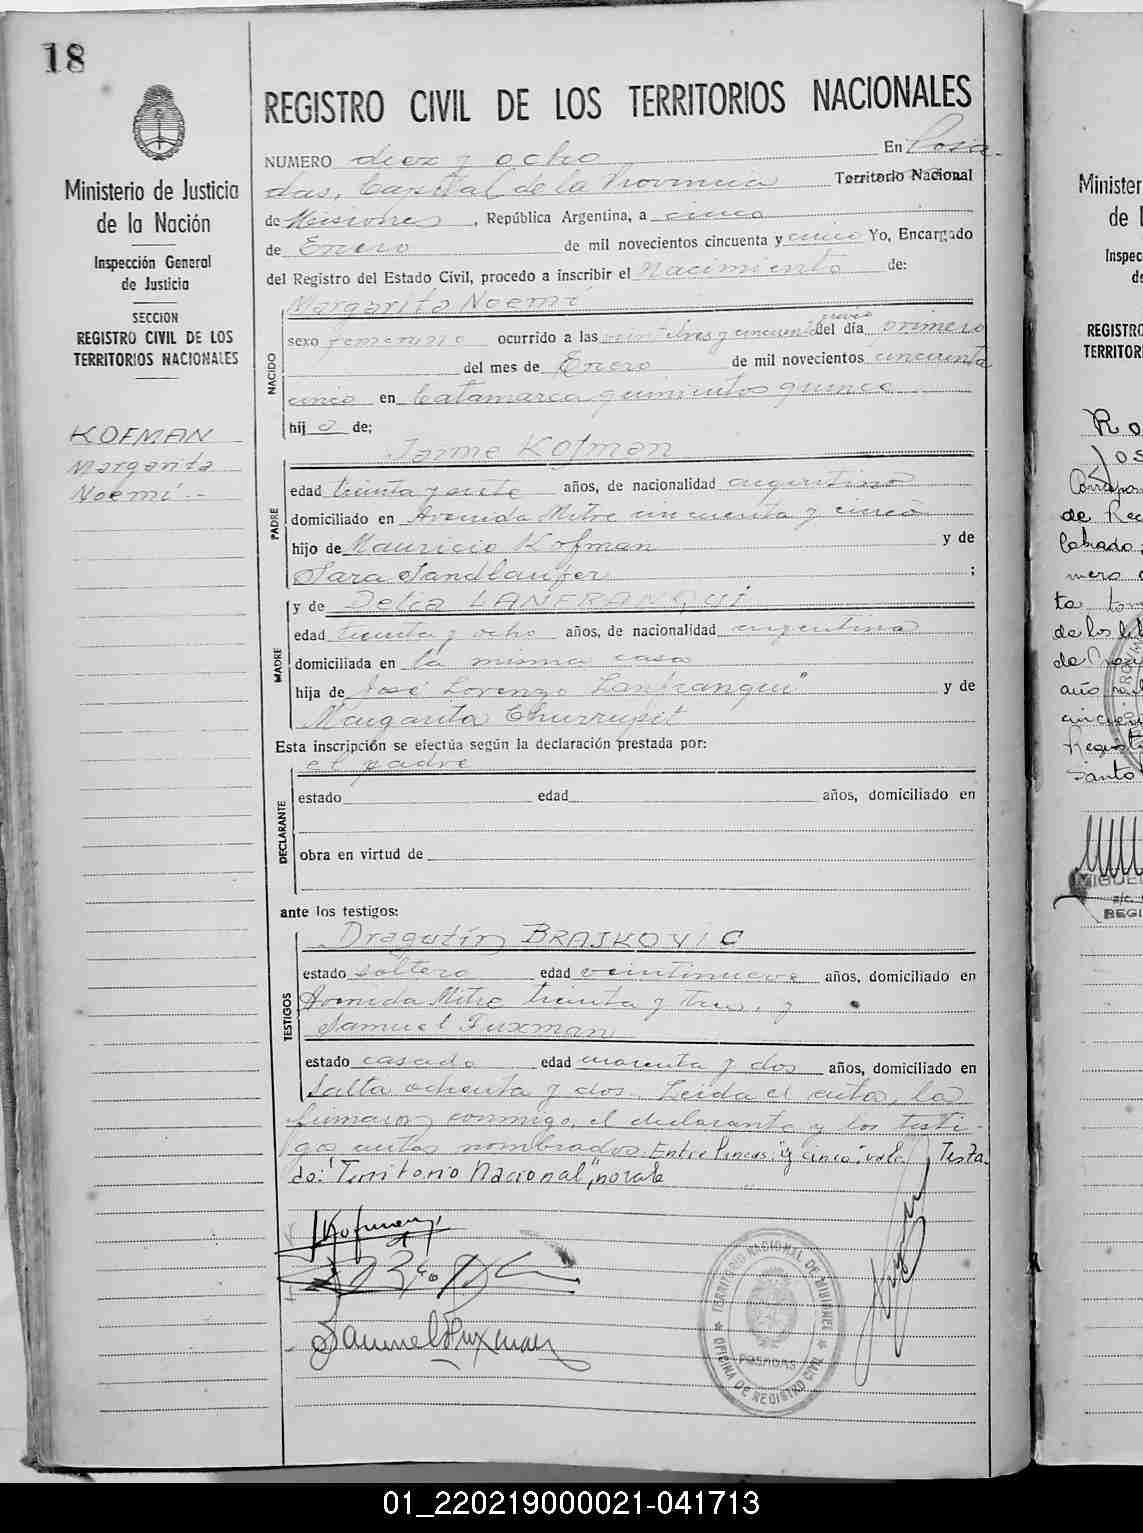 18
Ministerio de Justicia
de la Nación
Inspección General
de Justicia
SECCION
REGISTRO CIVIL DE LOS
TERRITORIOS NACIONALES
KOFMAN
Margarita
Noemí.-
REGISTRO CIVIL DE LOS TERRITORIOS NACIONALES
NUMERO diez y ocho En Posa-
das, Capital de la Provincia Territorio Nacional
de Misiones, República Argentina, a cinco
de Enero de mil novecientos cincuenta y cinco Yo, Encargado
del Registro del Estado Civil, procedo a inscribir el nacimiento de:
Margarita Noemí
NACIDO
sexo femenino ocurrido a las veintitres y cincuenta del día primero
del mes de Enero de mil novecientos cincuenta
cinco en Catamarca quinientos quince
hij a de;
Jaime Kofman
PADRE
edad treinta y siete años, de nacionalidad argentino
domiciliado en Avenida Mitre cincuenta y cinco
hijo de Mauricio Kofman y de
Sara Sandlaufer ;
y de Delia LANFRANQUI
MADRE
edad treinta y ocho años, de nacionalidad argentina
domiciliada en la misma casa
hija de José Lorenzo Lanfranqui y de
Margarita
Esta inscripción se efectúa según la declaración prestada por:
el padre
DECLARANTE
estado edad años, domiciliado en
obra en virtud de
ante los testigos:
Dragutín BRAJKOVIC
TESTIGOS
estado soltero edad veintinueve años, domiciliado en
Avenida Mitre treinta y tres, y
Samuel Fuxman
estado casado edad cuarenta y dos años, domiciliado en
Salta ochenta y dos. Leida el acta, la
firmaron conmigo, el declarante y los testi-
gos antes nombrados. Entre lineas: "y cinco": vale. Testa-
do: "Territorio Nacional", no vale
JKofman
Samuel Fuxman
TERRITORIO NACIONAL DE MISIONES
POSADAS
OFICINA DE REGISTRO CIVIL
Minister
de l
Inspec
de
REGISTRO
TERRITOR
Ro
Jos
de Re
mero
ta tom
de los lib
año
Regist
Santo
MIGUEL
REGI
01_220219000021-041713